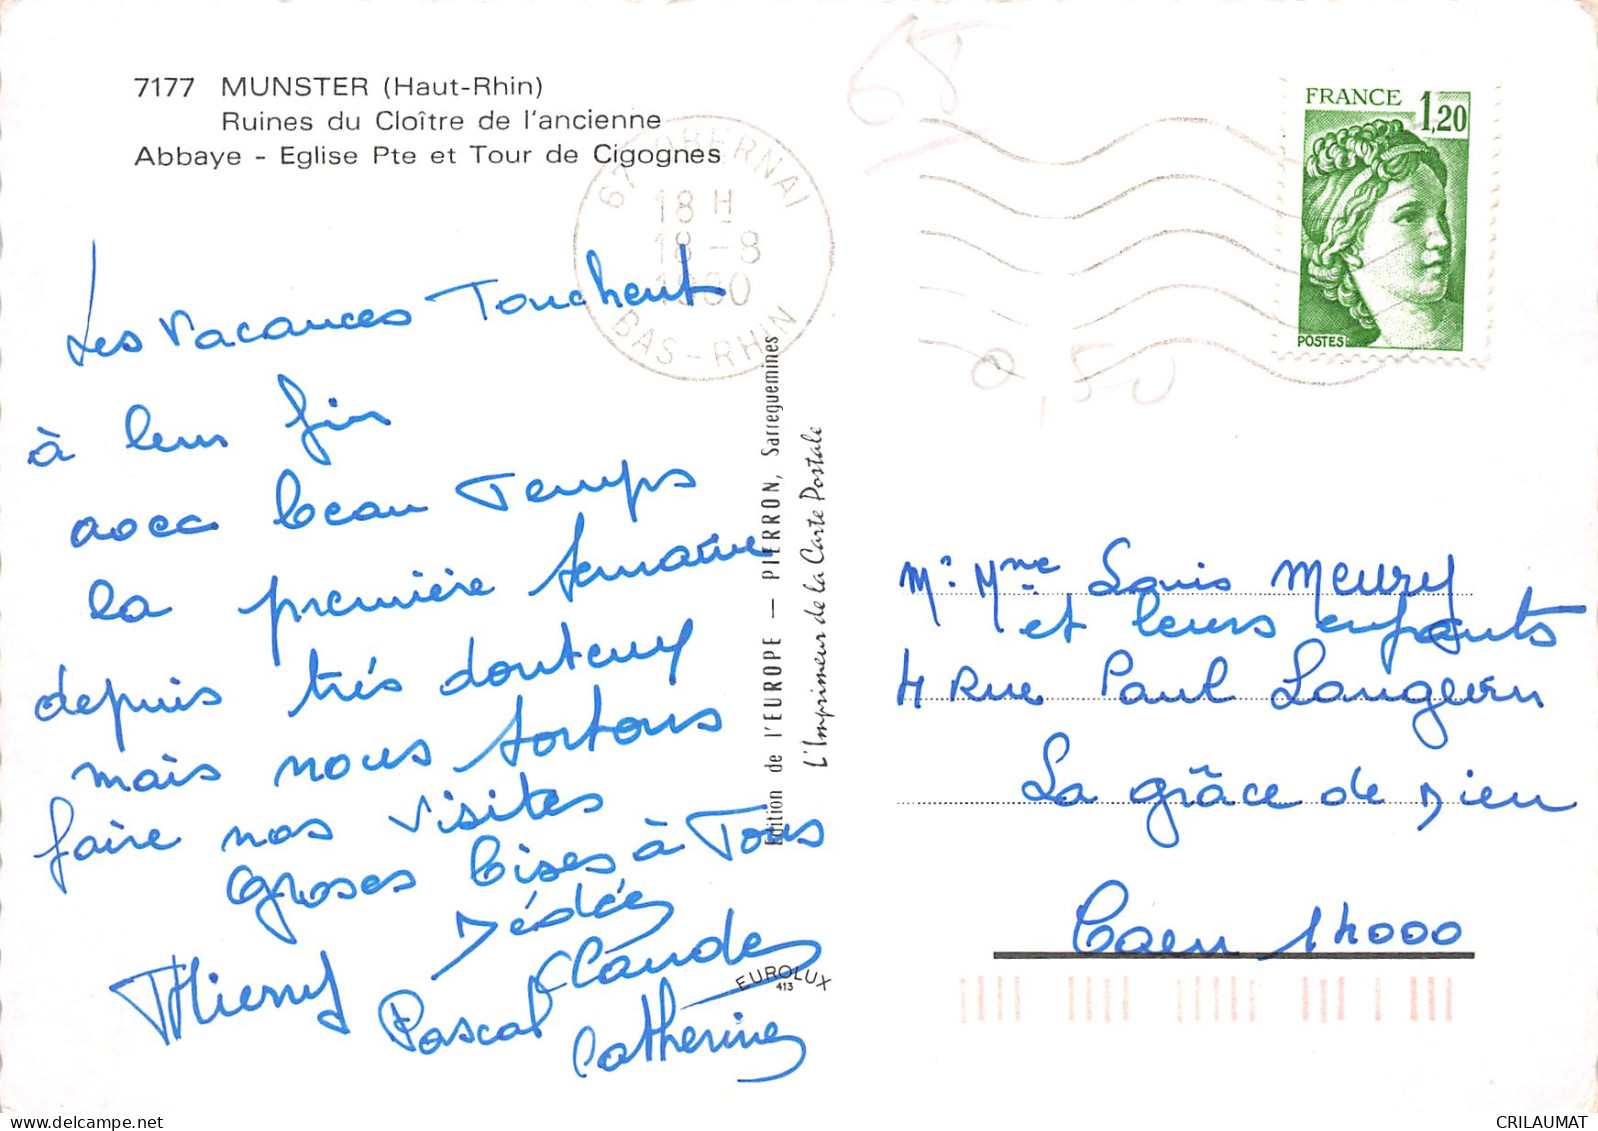 7177 MUNSTER (Haut-Rhin)
Ruines du Cloître de l'ancienne
Abbaye - Eglise Pte et Tour de Cigognes
67 OBERNAI
18 H
18 - 8
1980
BAS-RHIN
65
FRANCE 1,20
POSTES
0,50
Les vacances Touchent
à leur fin
avec beau Temps
la première semaine
depuis très douteux
mais nous sortons
faire nos visites
Groses bises à Tous
Dédée
Thierry Claude
Pascal
Catherine
Edition de l'EUROPE — PIERRON, Sarreguemines
L'Imprimeur de la Carte Postale
EUROLUX
413
Mr. Mme Louis Meury
et leurs enfants
4 Rue Paul Langevin
La grâce de Dieu
Caen 14000
CRILAUMAT